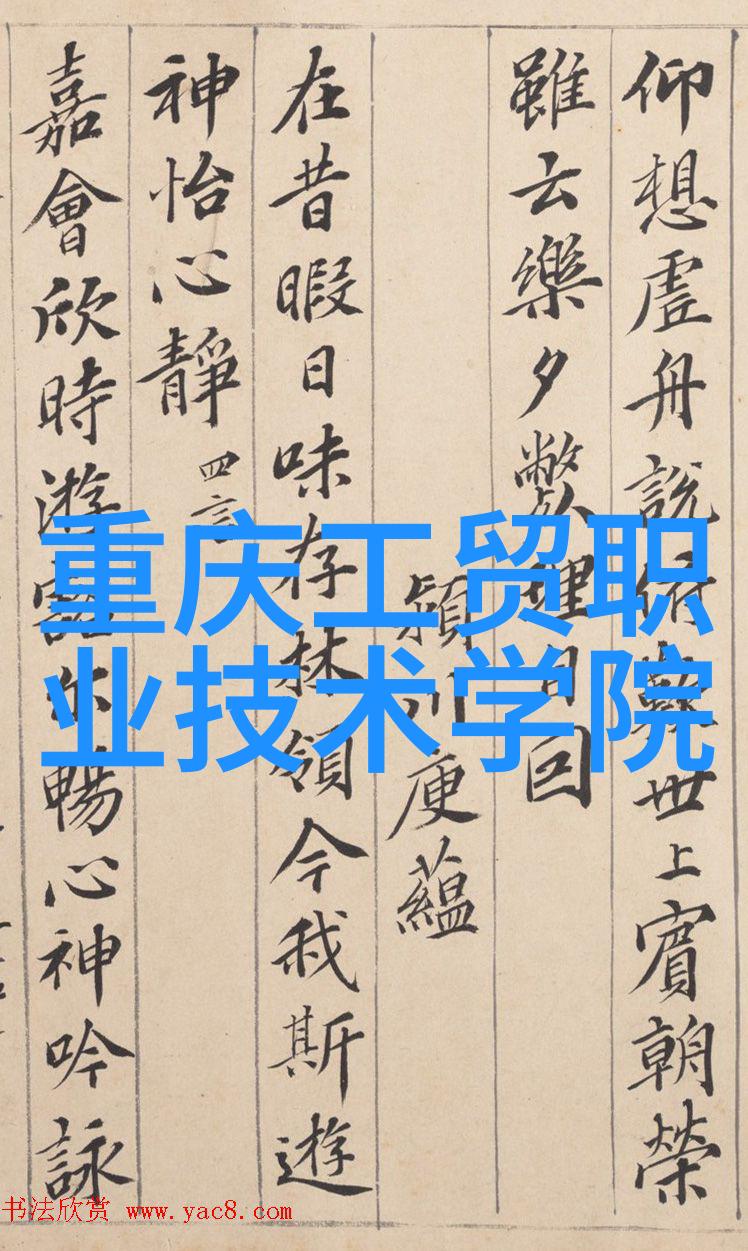 仰想虛舟說俯歎世上賓朝榮
雖云樂夕弊理自回
潁川庾蘊
在昔暇日味存林領今我斯遊
神怡心靜 四言
嘉會欣時游豁尔暢心神吟詠
重庆工贸职
业技术学院
书法欣赏 www.yac8.com